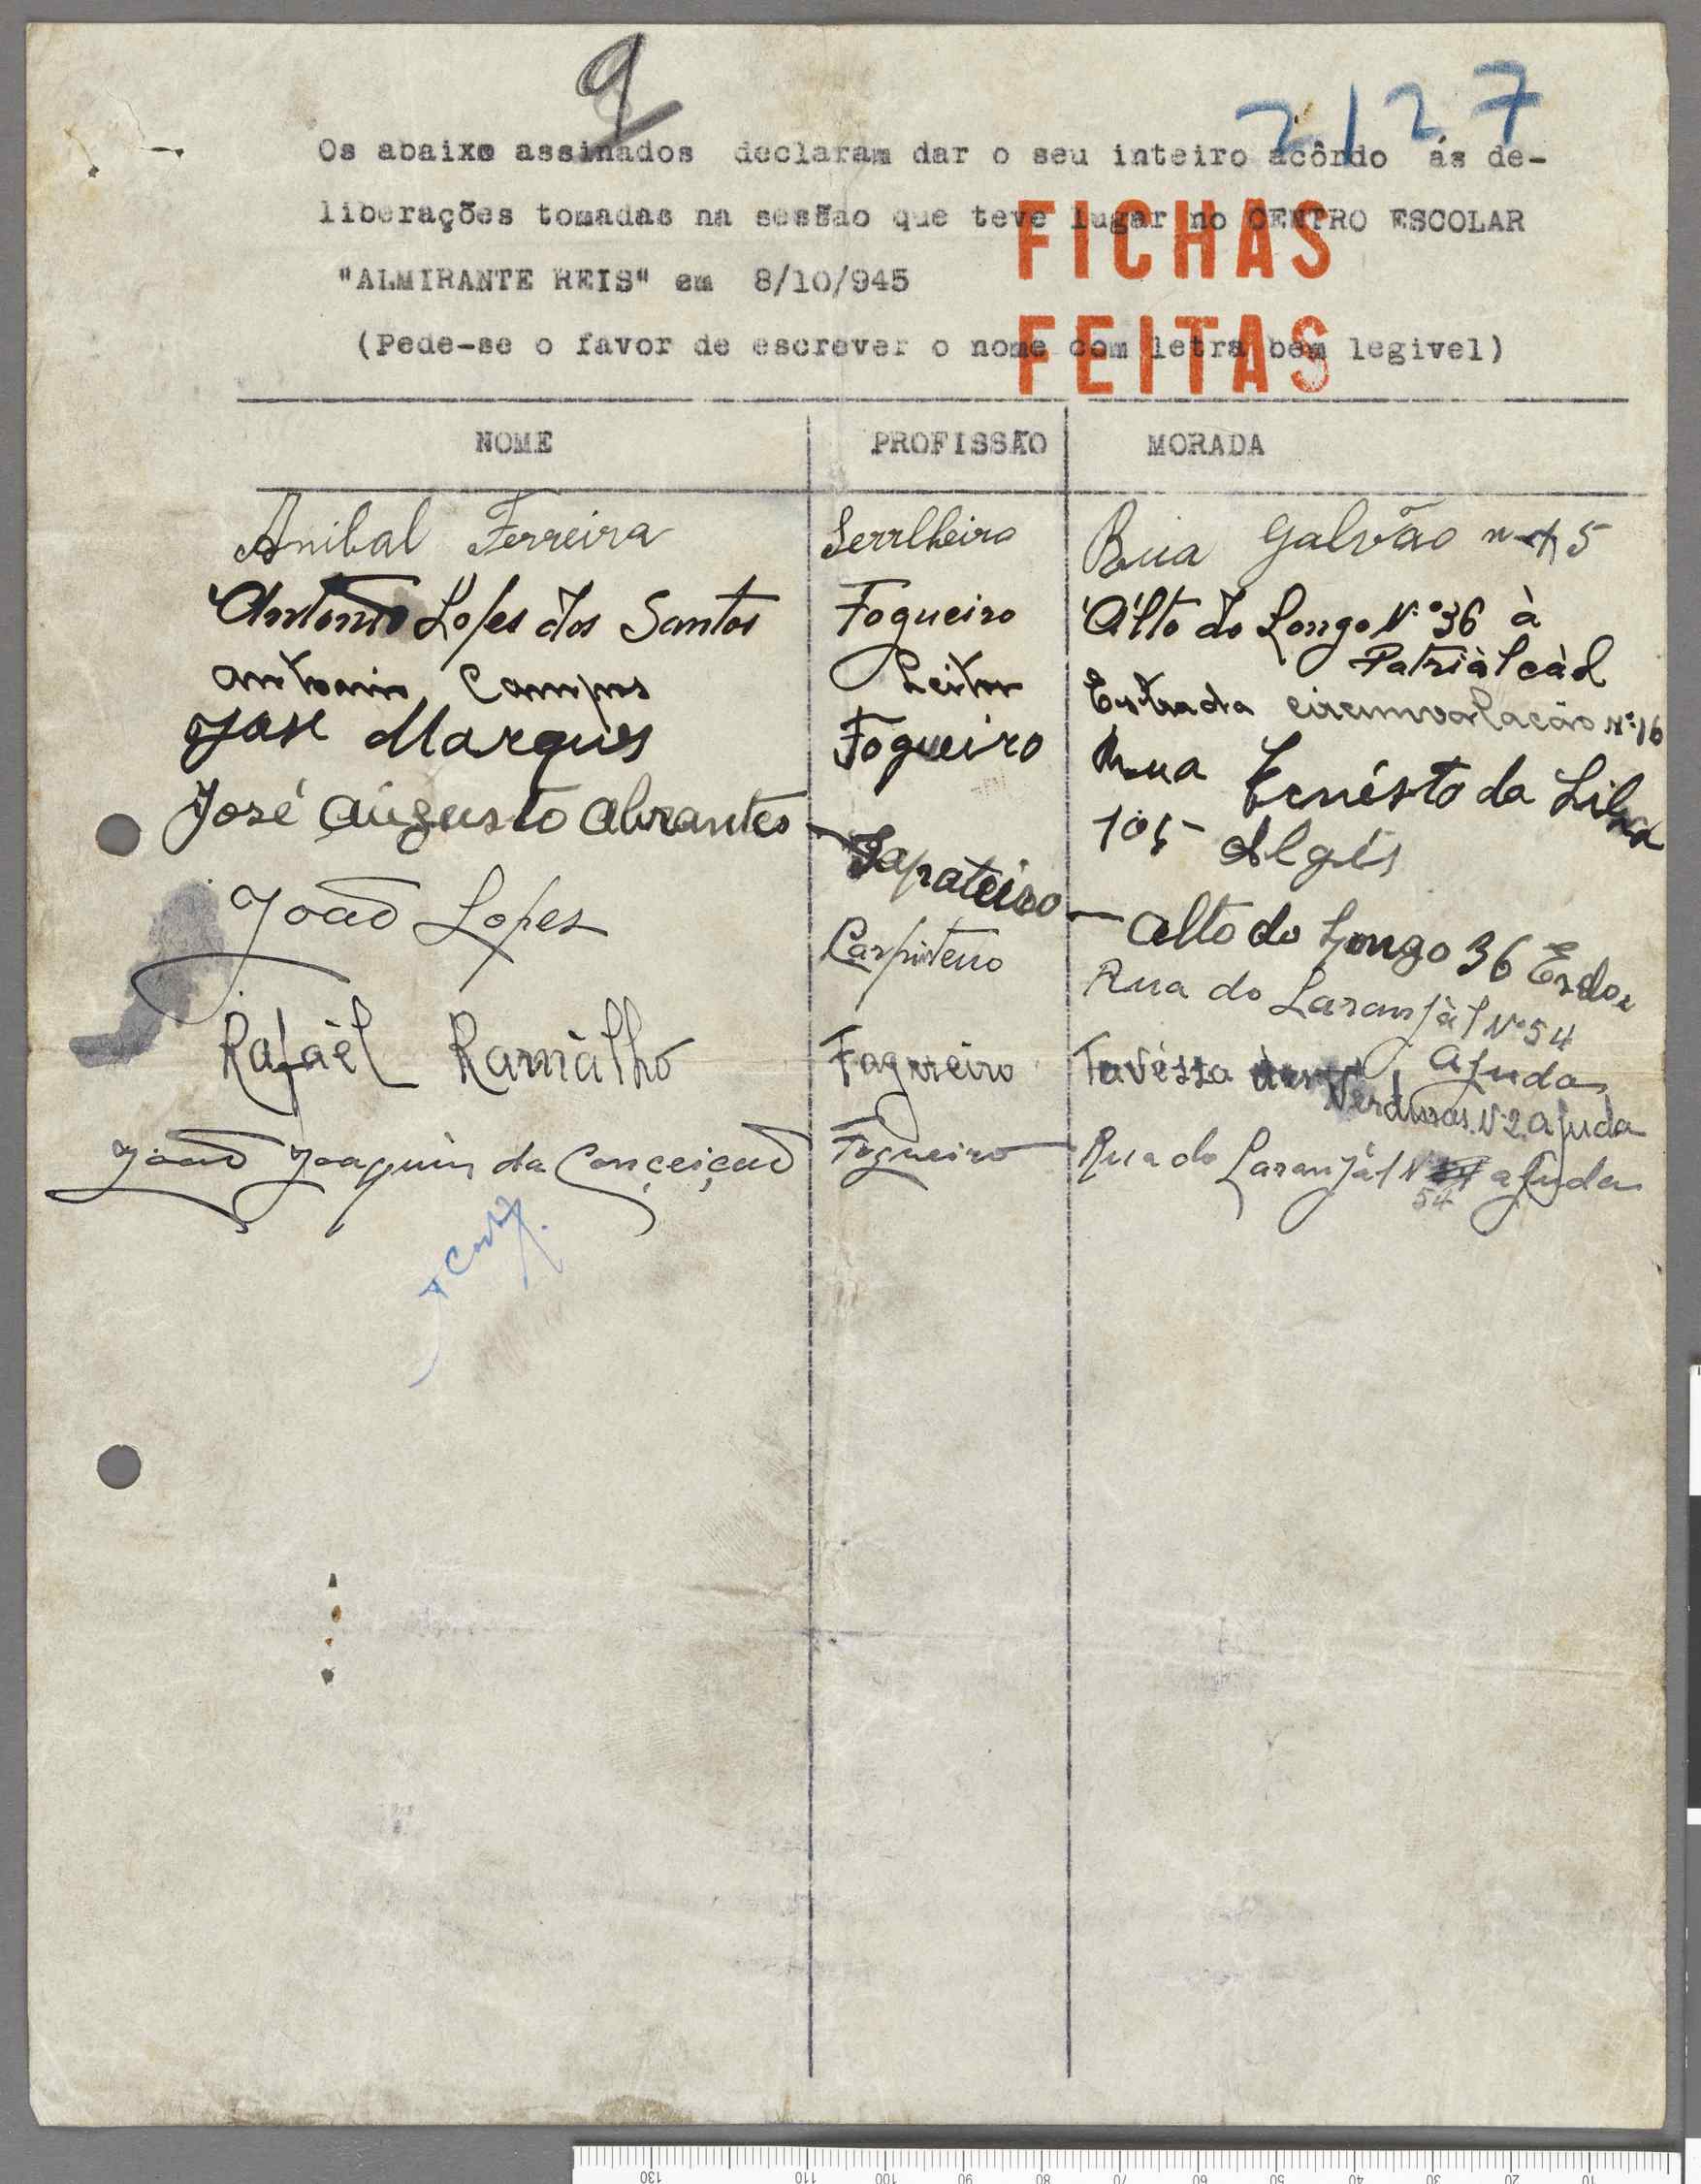 9
2127
Os abaixo assinados declaram dar o seu inteiro acôrdo ás de-
liberações tomadas na sessão que teve lugar no CENTRO ESCOLAR
"ALMIRANTE REIS" em 8/10/945
(Pede-se o favor de escrever o nome com letra bem legivel)
FICHAS
FEITAS
NOME PROFISSÃO MORADA
Anibal Ferreira Serrlheiro Rua Galvão 5
António Lopes dos Santos Fogueiro Álto do Longo Nº 36 à
Patriàlcàl
Antonio Campos Estrada circunvalacão Nº 16
José Marques Fogueiro Rua Ernésto da Silva
105 Algés
José Augusto Abrantes Sapateiro Alto do Longo 36
João Lopes Carpinteiro Rua do Laranjàl Nº 54
Ajuda
Rafaèl Ramàlho Fogueiro Tavéssa
Verduras Nº 2 Ajuda
João Joaquim da Conçeiçaõ Fogueiro Rua do Laranjàl Nº Ajuda
54